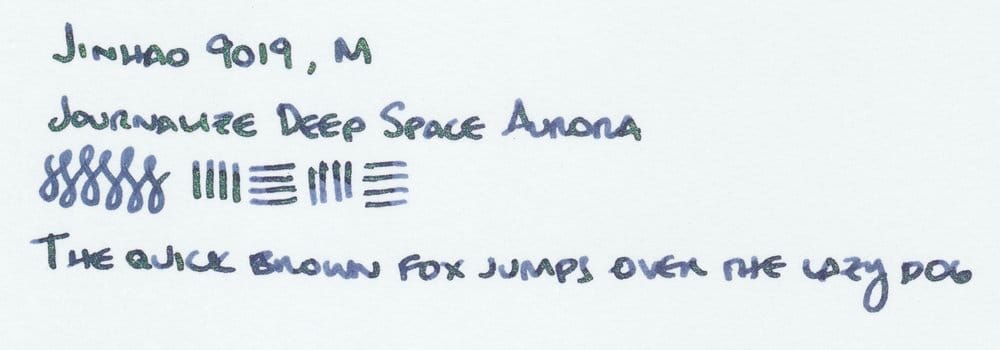 Jinhao 9019, M
Journalize Deep Space Aurora
The quick brown fox jumps over the lazy dog